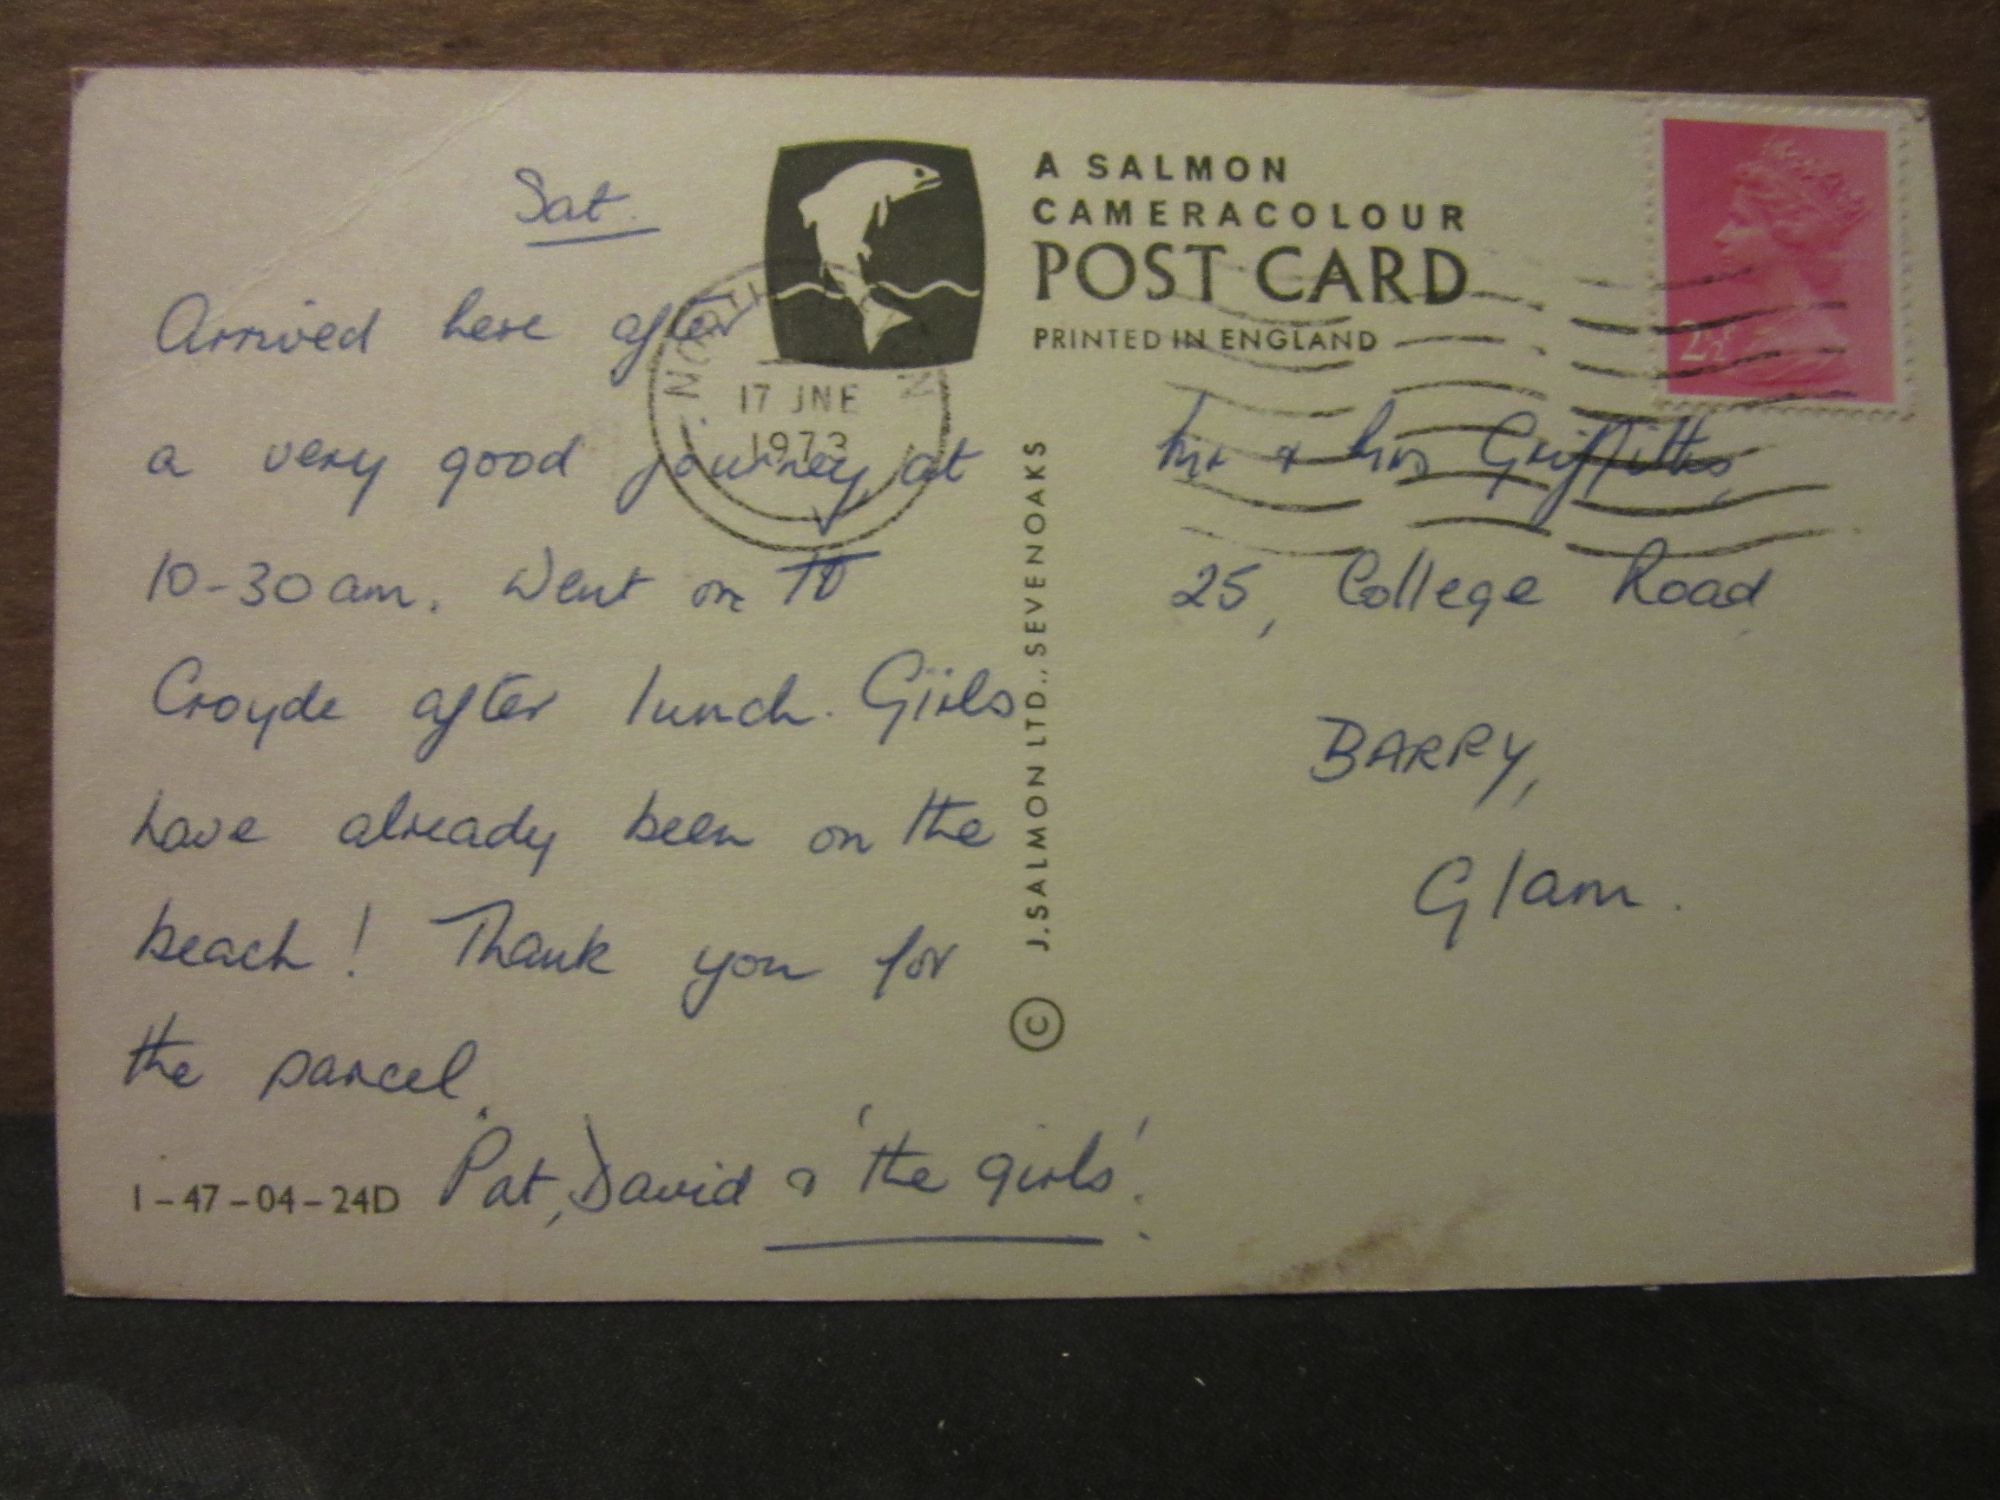 Sat.
Arrived here after
a very good journey, at
10-30am. Went on to
Croyde after lunch. Girls
have already been on the
beach! Thank you for
the parcel.
Pat, David & 'the girls'.
1-47-04-24D
A SALMON
CAMERACOLOUR
POST CARD
PRINTED IN ENGLAND
17 JNE
1973
© J. SALMON LTD., SEVENOAKS
2½P
Mr & Mrs Griffiths,
25, College Road
BARRY,
Glam.